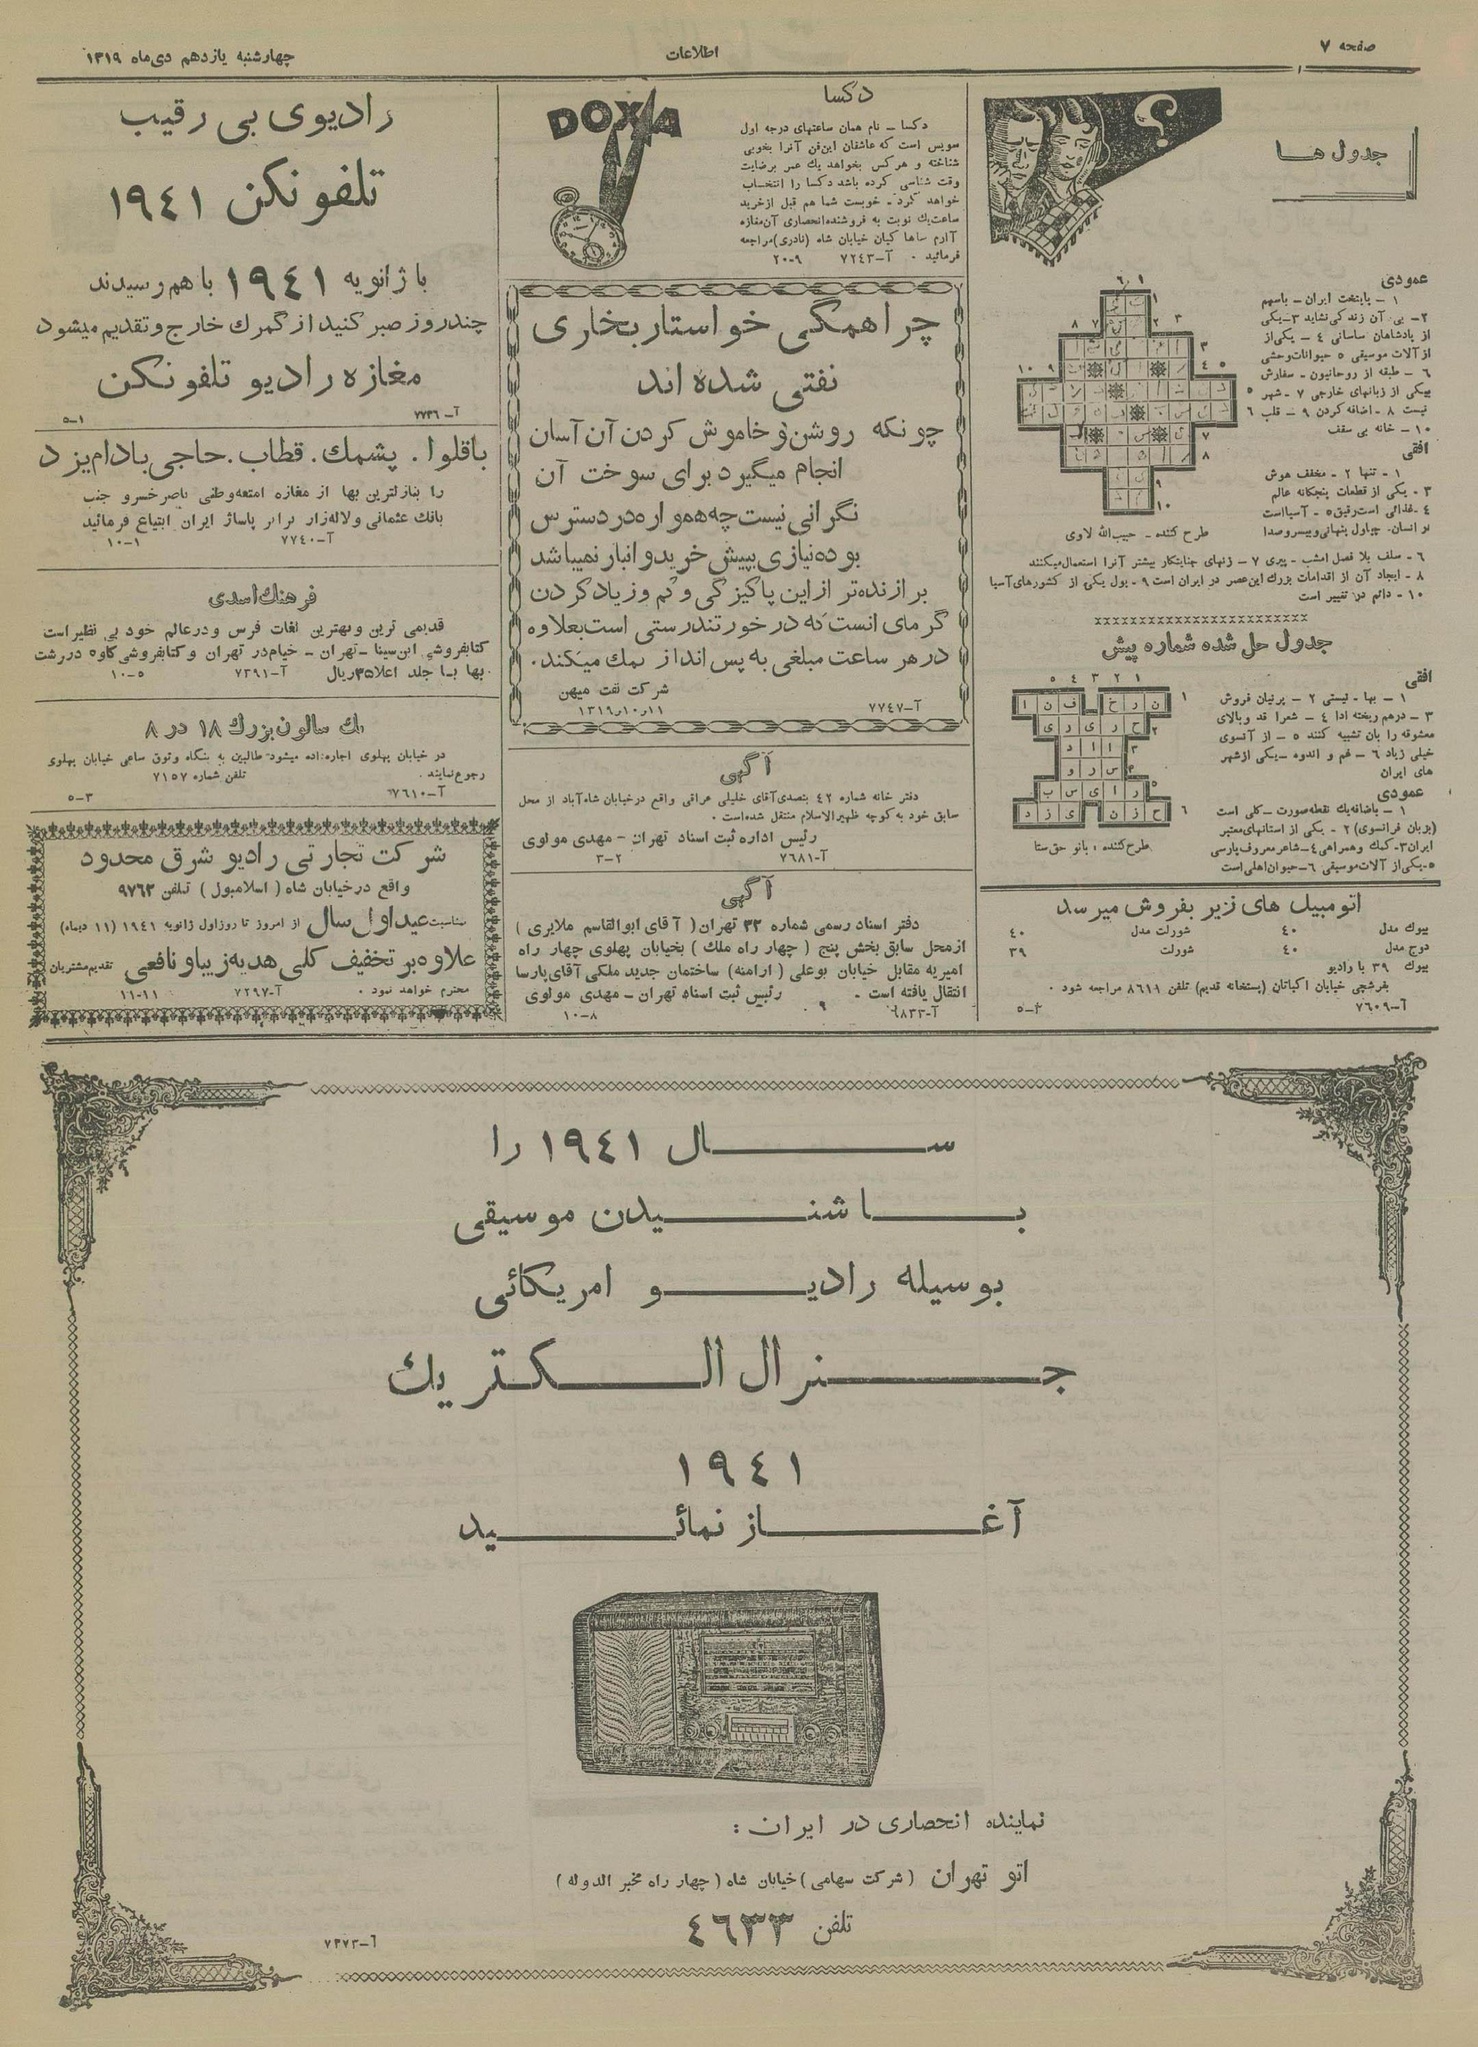 صفحه ۷
اطلاعات
چهارشنبه یازدهم دی‌ماه ۱۳۱۹
جدول ها
عمودی
۱ - پایتخت ایران - باسهم
۲- بی آن زندگی نشاید ۳-یکی
از پادشاهان ساسانی ٤ - یکی از
از آلات موسیقی ۵ حیوانات وحشی
۶ - طبقه از روحانیون - سفارش
بیکی از زبانهای خارجی ۷ - شهر
نیست ۸ - اضافه کردن ۹ - قلب
۱۰ - خانه بی سقف
افقی
۱ - تنها ۲ - مخفف هوش
۳ - یکی از قطعات پنجگانه عالم
٤ -غذائی است رقیق ۵ - آسیا است
نو انسان- چپاول پنهانی و بیسروصدا
طرح کننده - حبیب‌الله لاوی
۶ - سلف بلا فصل امشب - پیری ۷ - زنهای جنایتکار بیشتر آنرا استعمال میکنند
۸ - ایجاد آن از اقدامات بزرك این عصر در ایران است ۹ - پول یکی از کشورهای آسیا
۱۰ - دائم در تغییر است
جدول حل شده شماره پیش
افقی
۱ - بها - نیستی ۲ - پرنیان فروش
۳ - درهم ریخته ادا ٤ - شعرا قد وبالای
معشوقه را بان تشبیه کنند ۵ - از آنسوی
خیلی زیاد ۶ - غم و اندوه - یکی از شهر
های ایران
عمودی
۱ - باضافه یك نقطه صورت - کلی است
(بزبان فرانسوی) ۲ - یکی از استانهای معتبر
ایران ۳-کمك وهمراهی ٤-شاعر معروف پارسی
۵-یکی از آلات موسیقی ۶-حیوان اهلی است
۱ ۲ ۳ ٤ ۵
ن ر خ ف ن ا
ح ر ی ر ی
ا ا د
س ر و
ر ا ی س ب
ح ز ن ی ز د
طرح کننده : بانو حق‌ستا
اتومبیل های زیر بفروش میرسد
بیوك مدل ٤۰ شورلت مدل ٤۰
دوج مدل ٤۰ شورلت ۳۹
بیوك ۳۹ با رادیو
بفرشچی خیابان اکباتان (پستخانه قدیم) تلفن ۸۶۱۱ مراجعه شود .
آ-۷۶۰۹
DOXA
دکسا
دکسا - نام همان ساعتهای درجه اول
سویس است که عاشقان این‌فن آنرا بخوبی
شناخته و هرکس بخواهد یك عمر برضایت
وقت شناسی کرده باشد دکسا را انتخاب
خواهد کرد - خوبست شما هم قبل از خرید
ساعت یك نوبت به فروشنده انحصاری آن مغازه
آارم ساها کیان خیابان شاه (نادری) مراجعه
فرمائید . آ-۷۲٤۳ ۹-۲۰
چرا همگی خواستار بخاری
نفتی شده اند
چونکه روشن و خاموش کردن آن آسان
انجام میگیرد برای سوخت آن
نگرانی نیست چه همواره در دسترس
بوده نیازی بپیش خرید و انبار نمیباشد
برازنده تر از این پاکیزگی و کم و زیاد کردن
گرمای آنست که در خور تندرستی است بعلاوه
در هر ساعت مبلغی به پس انداز کمك میکند.
شرکت نفت میهن
آ-۷۷٤۷ ۱۳۱۹ر۱۰ر۱۱
آگهی
دفتر خانه شماره ٤۲ بتصدی آقای خلیلی عراقی واقع درخیابان شاه‌آباد از محل
سابق خود به کوچه ظهیرالاسلام منتقل شده است .
رئیس اداره ثبت اسناد تهران - مهدی مولوی
آ-۷۶۸۱ ۲-۳
آگهی
دفتر اسناد رسمی شماره ۳۳ تهران ( آقای ابوالقاسم ملایری )
از محل سابق بخش پنج ( چهار راه ملك ) بخیابان پهلوی چهار راه
امیریه مقابل خیابان بوعلی (ارامنه) ساختمان جدید ملکی آقای پارسا
انتقال یافته است . رئیس ثبت اسناد تهران - مهدی مولوی
آ-۶۸۳۳ ۸-۱۰
رادیوی بی رقیب
تلفونکن ۱۹٤۱
با ژانویه ۱۹٤۱ باهم رسیدند
چند روز صبر کنید از گمرك خارج و تقدیم میشود
مغازه رادیو تلفونکن
آ-۷۷۳۶ ۱-۵
باقلوا . پشمك . قطاب . حاجی بادام یزد
را بنازلترین بها از مغازه امتعه وطنی ناصرخسرو جنب
بانك عثمانی و لاله‌زار برابر پاساژ ایران ابتیاع فرمائید
آ-۷۷٤۰ ۱-۱۰
فرهنك اسدی
قدیمی ترین و بهترین لغات فرس و در عالم خود بی نظیر است
کتابفروشی ابن سینا - تهران - خیام در تهران و کتابفروشی کاوه در رشت
بها با جلد اعلا ۳۵ ریال آ-۷۳۹۱ ۵-۱۰
یك سالون بزرك ۱۸ در ۸
در خیابان پهلوی اجاره داده میشود- طالبین به بنگاه وثوق ساعی خیابان پهلوی
رجوع نمایند . تلفن شماره ۷۱۵۷
آ-۷۶۱۰ ۳-۵
شرکت تجارتی رادیو شرق محدود
واقع در خیابان شاه ( اسلامبول ) تلفن ۹۷۶۳
بمناسبت عید اول سال از امروز تا روز اول ژانویه ۱۹٤۱ (۱۱ دیماه)
علاوه بر تخفیف کلی هدیه زیبا و نافعی تقدیم مشتریان
محترم خواهد نمود . آ-۷۲۹۷ ۱۱-۱۱
سال ۱۹٤۱ را
با شنیدن موسیقی
بوسیله رادیو امریکائی
جنرال الکتریك
۱۹٤۱
آغاز نمائید
نماینده انحصاری در ایران :
اتو تهران ( شرکت سهامی ) خیابان شاه ( چهار راه مخبر الدوله )
تلفن ٤۶۳۳